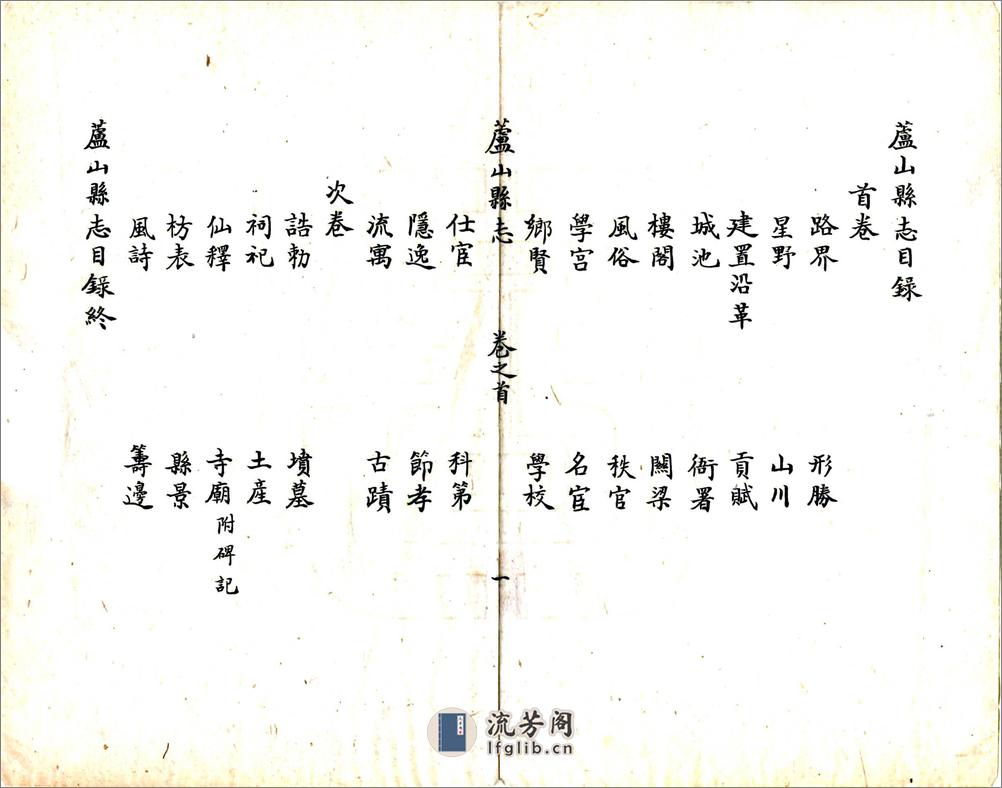 蘆山縣志目錄
首卷
路界 形勝
星野 山川
建置沿革 貢賦
城池 衙署
樓閣 關梁
風俗 秩官
學宮 名宦
鄉賢 學校
蘆山縣志 卷之首 一
仕宦 科第
隱逸 節孝
流寓 古蹟
次卷
誥勅 墳墓
祠祀 土產
仙釋 寺廟附碑記
枋表 縣景
風詩 籌邊
蘆山縣志目錄終
流芳阁
lfglib.cn